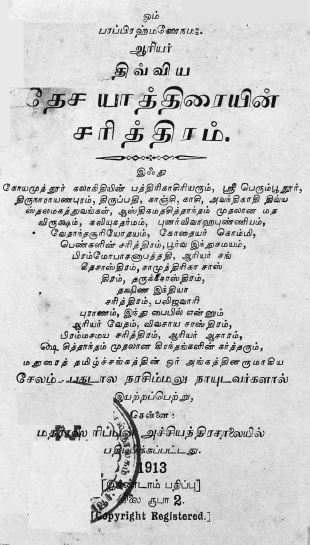 ஓம்
பரப்பிரஹ்மணேநம:.
ஆரியர்
திவ்விய
தேச யாத்திரையின்
சரித்திரம்.
இஃது
கோயமுத்தூர் கலாநிதியின் பத்திரிகாசிரியரும், ஸ்ரீ பெரும்பூதூர்,
திருநாராயணபுரம், திருப்பதி, காஞ்சி, காசி, அவந்திகாதி திவ்ய
ஸ்தலமகத்துவங்கள், ஆஸ்திகமதசித்தாந்தம் முதலான மத
விருக்ஷம், கலியுகதர்மம், புனர்விவாஹபுண்ணியம்,
வேதாந்தசூரியோதயம், கோதையர் கொம்மி,
பெண்களின் சரித்திரம், பூர்வ இந்துசமயம்,
பிரம்மோபாசனாபத்ததி, ஆரியர் சங்
கீதசாஸ்திரம், சாமுத்திரிகா சாஸ்
திரம், தருக்கசாஸ்திரம்,
தக்ஷிண இந்தியா
சரித்திரம், பலிஜவாரி
புராணம், இந்து பைபில் என்னும்
ஆரியர் வேதம், விவசாய சாஸ்திரம்,
பிரம்மசமய சரித்திரம், ஆரியர் ஆசாரம்,
சித்தாந்தம் முதலான கிரந்தங்களின் கர்த்தரும்,
மதுரைத் தமிழ்ச்சங்கத்தின் ஓர் அங்கத்தினருமாகிய
சேலம் பகடால நரசிம்மலு நாயுடவர்களால்
இயற்றப்பெற்று,
சென்னை:
மதராஸ் ரிப்பன் அச்சியந்திரசாலையில்
பதிப்பிக்கப்பட்டது.
1913
[இரண்டாம் பதிப்பு]
விலை ரூபா 2.
[Copyright Registered.]